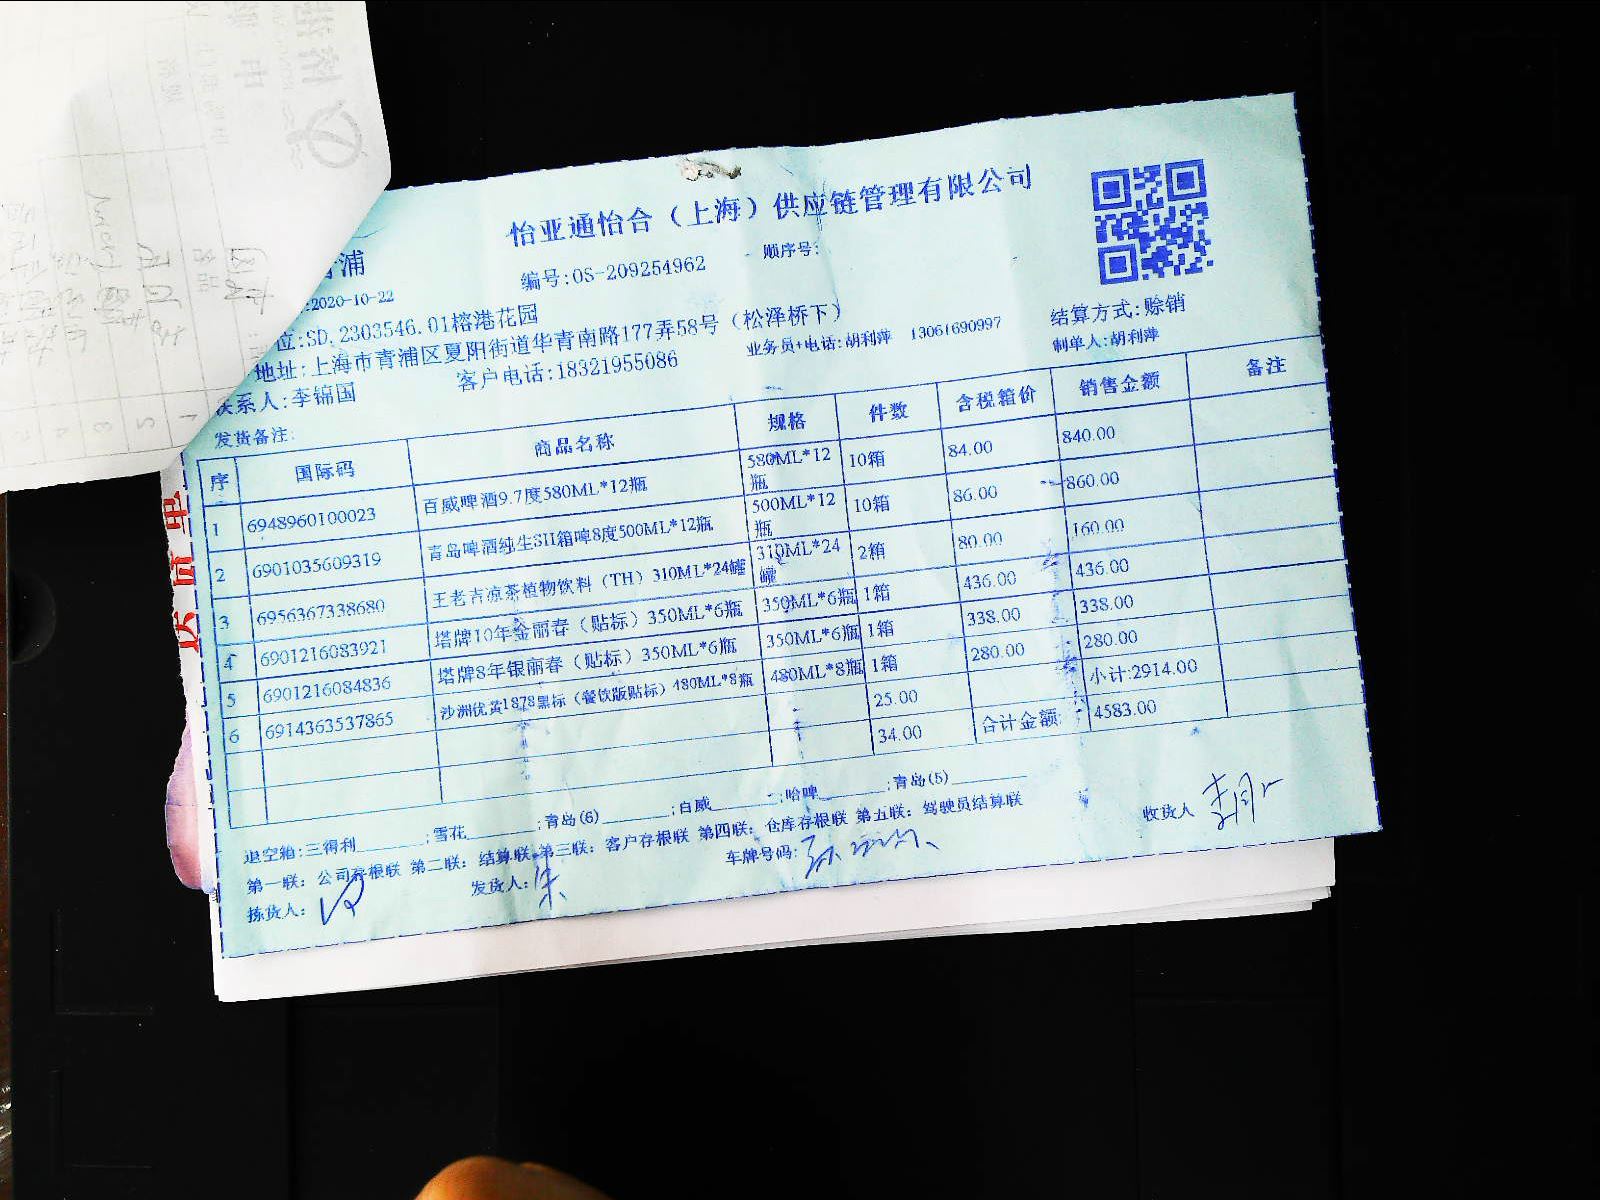 怡亚通怡合（上海）供应链管理有限公司
青浦
编号:OS-209254962
顺序号:
:2020-10-22
位:SD.2303546.01榕港花园
结算方式:赊销
地址:上海市青浦区夏阳街道华青南路177弄58号（松泽桥下）
业务员+电话:胡利萍 13061690997
制单人:胡利萍
联系人:李锦国
客户电话:18321955086
发货备注:
序 国际码 商品名称 规格 件数 含税箱价 销售金额 备注
1 6948960100023 百威啤酒9.7度580ML*12瓶 580ML*12瓶 10箱 84.00 840.00
2 6901035609319 青岛啤酒纯生SH箱啤8度500ML*12瓶 500ML*12瓶 10箱 86.00 860.00
3 6956367338680 王老吉凉茶植物饮料（TH）310ML*24罐 310ML*24罐 2箱 80.00 160.00
4 6901216083921 塔牌10年金丽春（贴标）350ML*6瓶 350ML*6瓶 1箱 436.00 436.00
5 6901216084836 塔牌8年银丽春（贴标）350ML*6瓶 350ML*6瓶 1箱 338.00 338.00
6 6914363537865 沙洲优黄1878黑标（餐饮版贴标）480ML*8瓶 480ML*8瓶 1箱 280.00 280.00
25.00 小计:2914.00
34.00 合计金额: 4583.00
退空箱:三得利______;雪花______;青岛(6)______;百威______;哈啤______;青岛(5)______
第一联：公司存根联 第二联：结算联 第三联：客户存根联 第四联：仓库存根联 第五联：驾驶员结算联
拣货人:
发货人:朱
车牌号码:
收货人